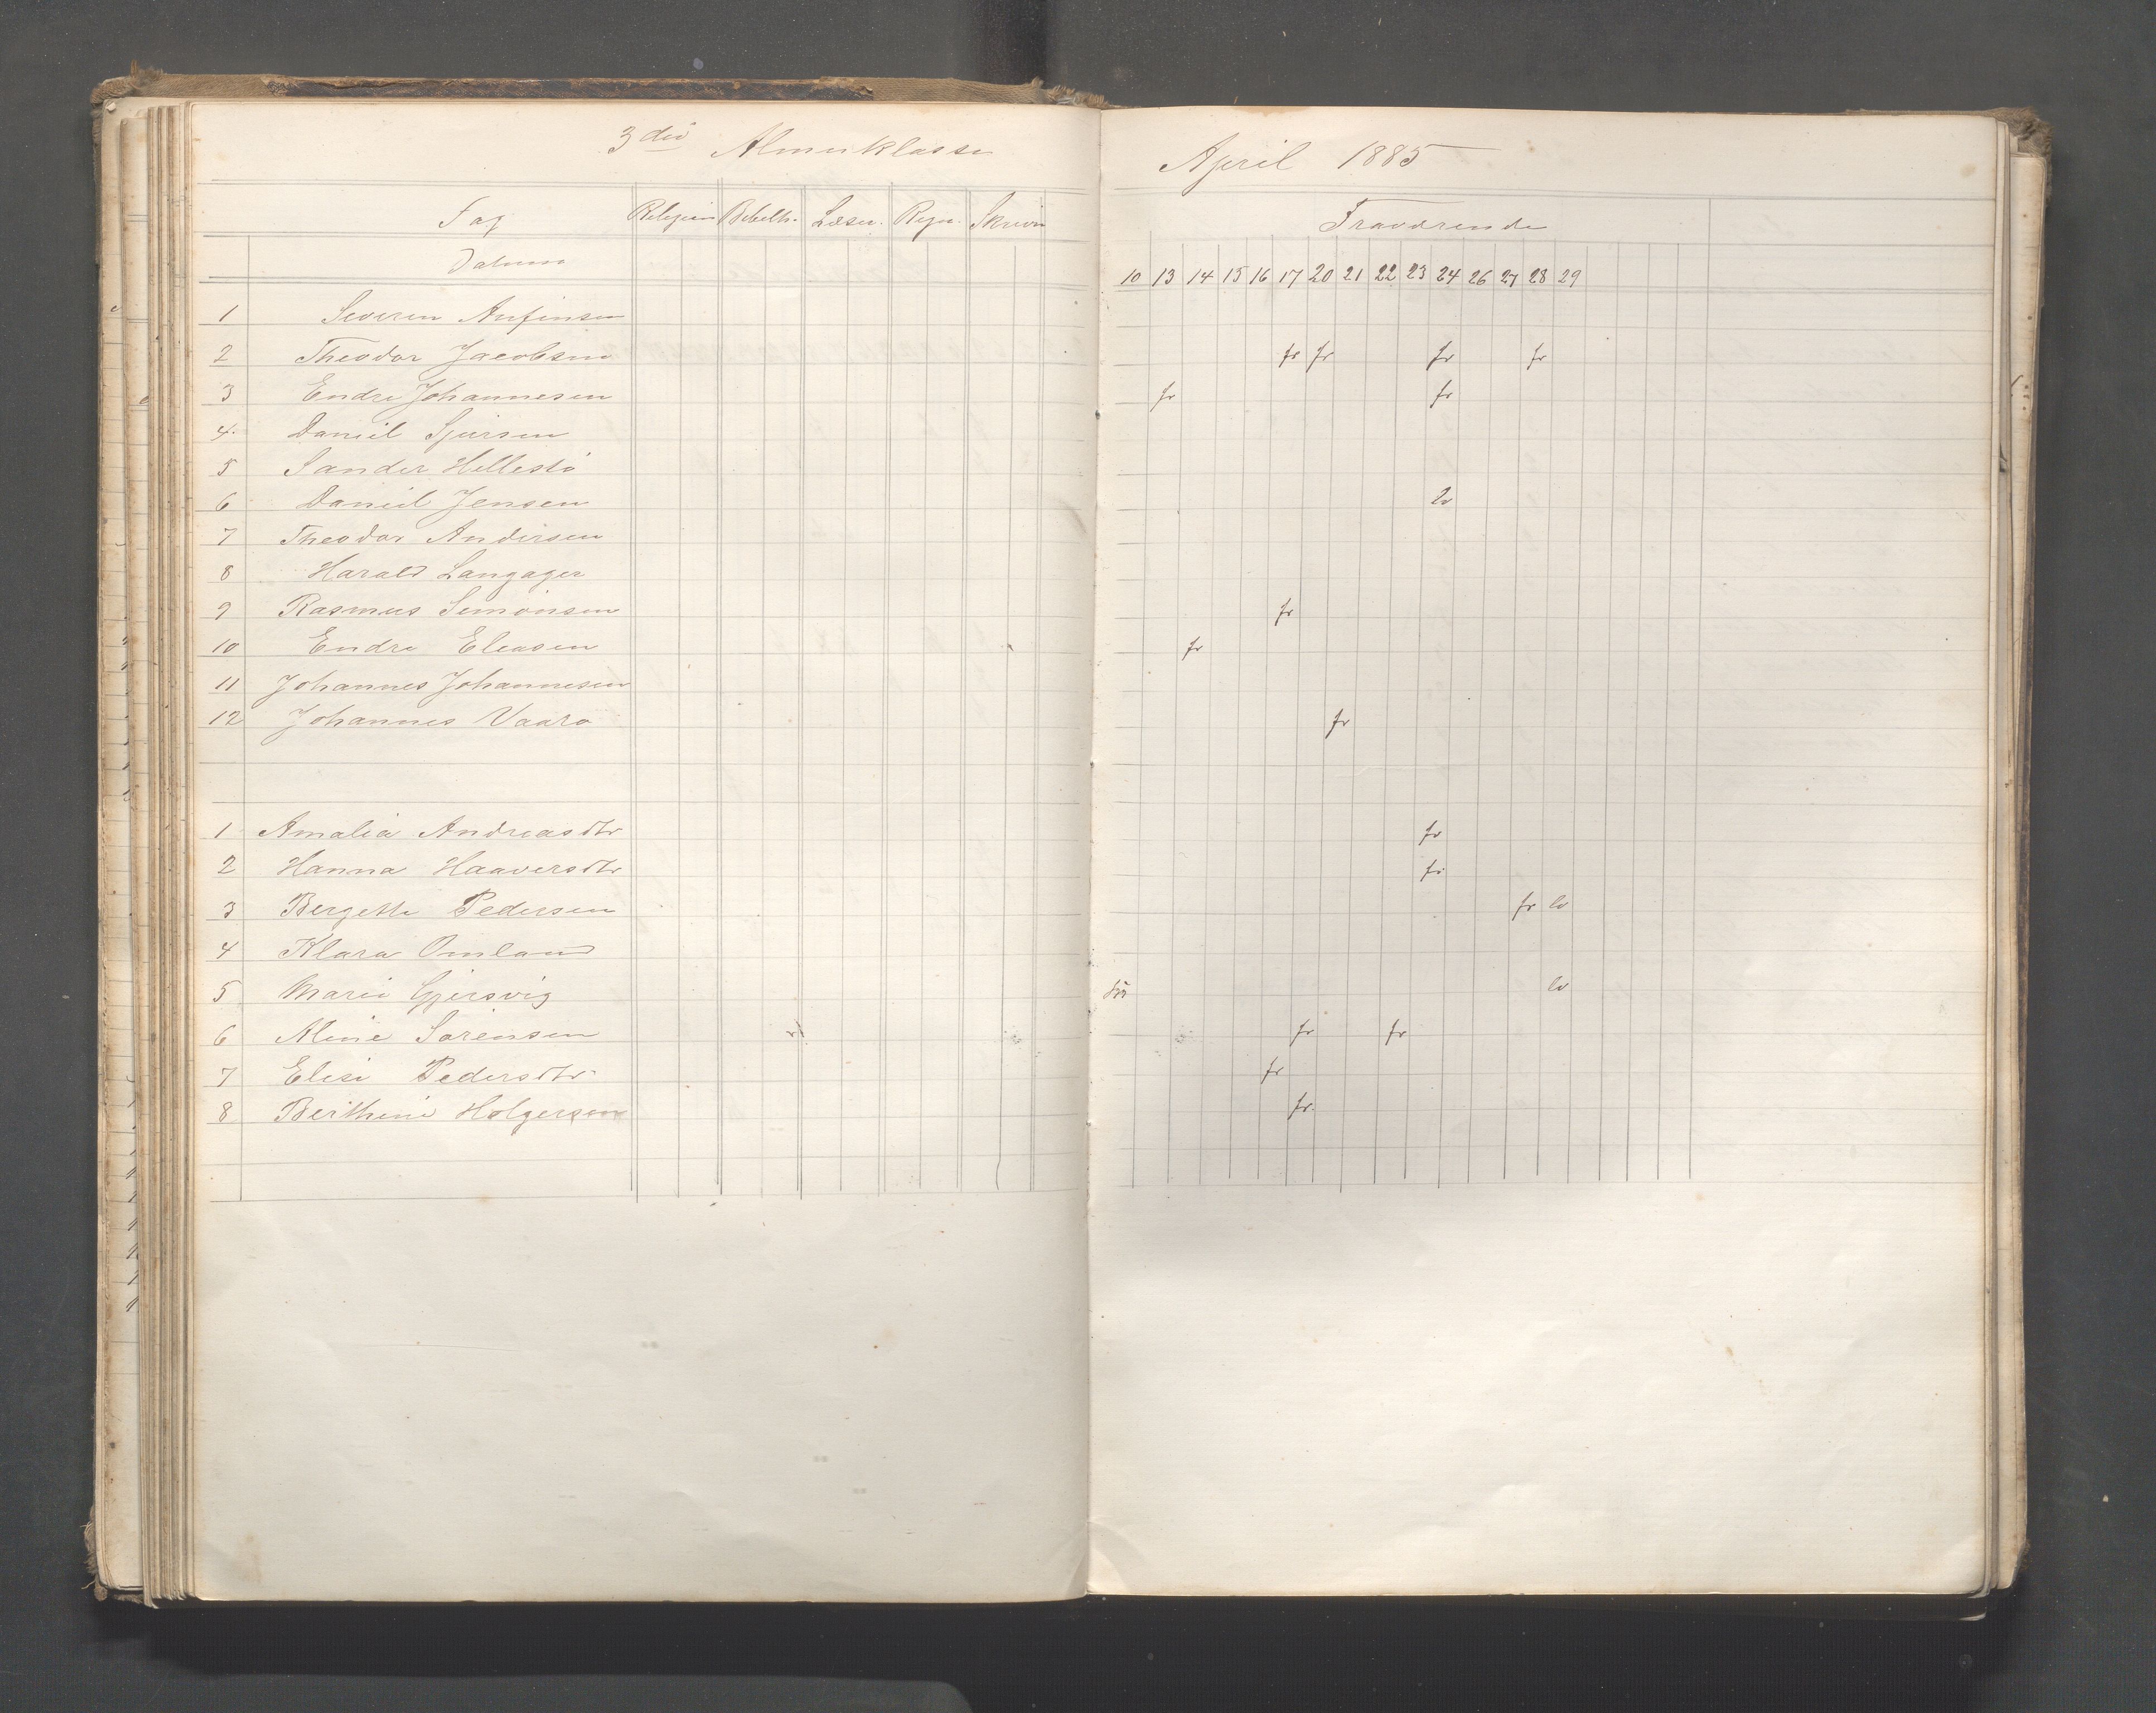 3die Almuklasse
April 1885
Fag Religion Bibelh. Læsn. Regn. Skrivn
Fraværende
Datum
10 13 14 15 16 17 20 21 22 23 24 26 27 28 29
1 Severin Anfinsen
2 Theodor Jacobsen fr fr fr fr
3 Endre Johannesen fr fr
4. Daniel Sjursen
5 Sander Hellestö
6 Daniel Jensen
7 Theodor Andersen
8 Harald Langager
9 Rasmus Simonsen fr
10 Endre Eleasen fr
11 Johannes Johannesen
12 Johannes Vaara fr
1 Amalia Andreasdtr fr
2 Hanna Haaversdtr fr
3 Bergette Pedersen fr lv
4 Klara Omland
5 Marie Gjersvig lv
6 Aline Sørensen fr fr
7 Elise Pedersdtr fr
8 Berthine Holgersen fr.